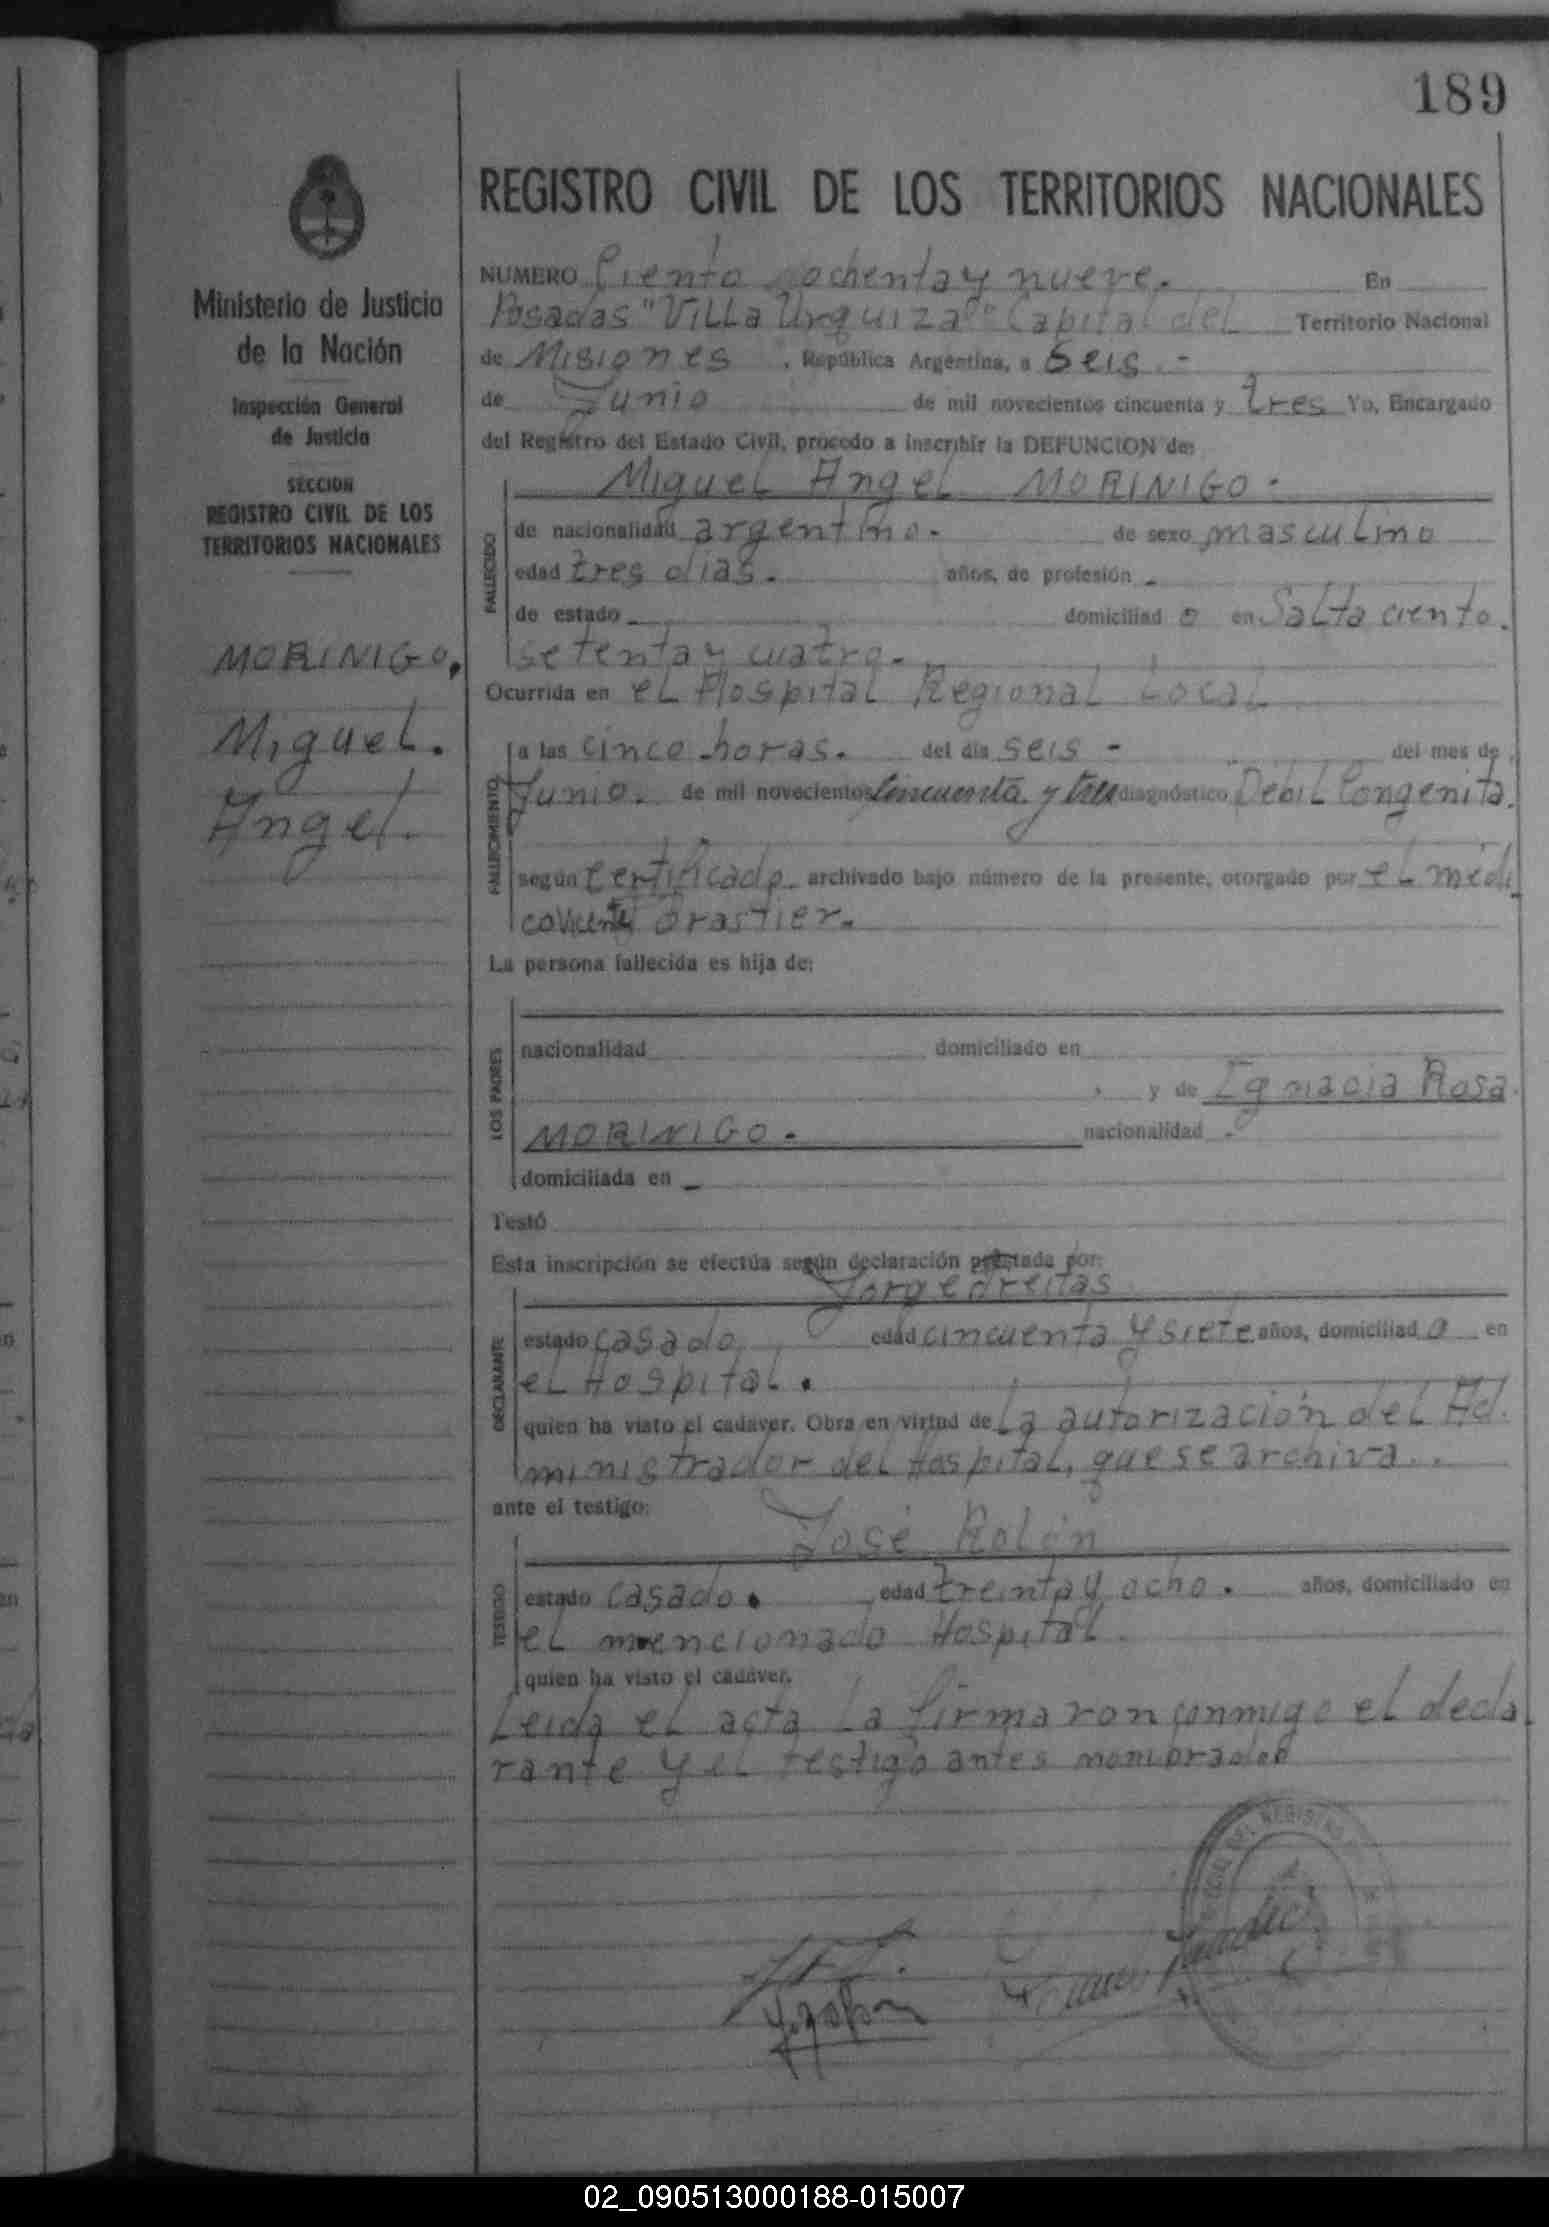 189
REGISTRO CIVIL DE LOS TERRITORIOS NACIONALES
Ministerio de Justicia
de la Nación
Inspección General
de Justicia
SECCION
REGISTRO CIVIL DE LOS
TERRITORIOS NACIONALES
MORINIGO.
Miguel.
Angel.
NUMERO Ciento ochenta y nueve. En
Posadas "Villa Urquiza" Capital del Territorio Nacional
de Misiones , República Argentina, a Seis -
de Junio de mil novecientos cincuenta y tres Yo, Encargado
del Registro del Estado Civil, procedo a inscribir la DEFUNCION de:
Miguel Angel MORINIGO.
FALLECIDO
de nacionalidad argentino. de sexo masculino
edad tres dias. años, de profesión -
de estado - domiciliad o en Salta ciento.
setenta y cuatro.
Ocurrida en el Hospital Regional Local
FALLECIMIENTO
a las cinco horas. del día seis - del mes de
Junio. de mil novecientos cincuenta y tres diagnóstico Debil Congenita.
según certificado archivado bajo número de la presente, otorgado por el médi
co Vicente
La persona fallecida es hija de:
LOS PADRES
nacionalidad domiciliado en
, y de Ignacia Rosa
MORINIGO. nacionalidad -
domiciliada en -
Testó
Esta inscripción se efectúa según declaración prestada por:
Jorge
DECLARANTE
estado casado edad cincuenta y siete años, domiciliad o en
el Hospital.
quien ha visto el cadáver. Obra en virtud de la autorización del Ad.
ministrador del Hospital, que se archiva..
ante el testigo:
José Rolón
TESTIGO
estado casado. edad treinta y ocho. años, domiciliado en
el mencionado Hospital.
quien ha visto el cadáver.
Leida el acta la firmaron conmigo el decla
rante y el testigo antes nombrados
DEL REGISTRO
02_090513000188-015007